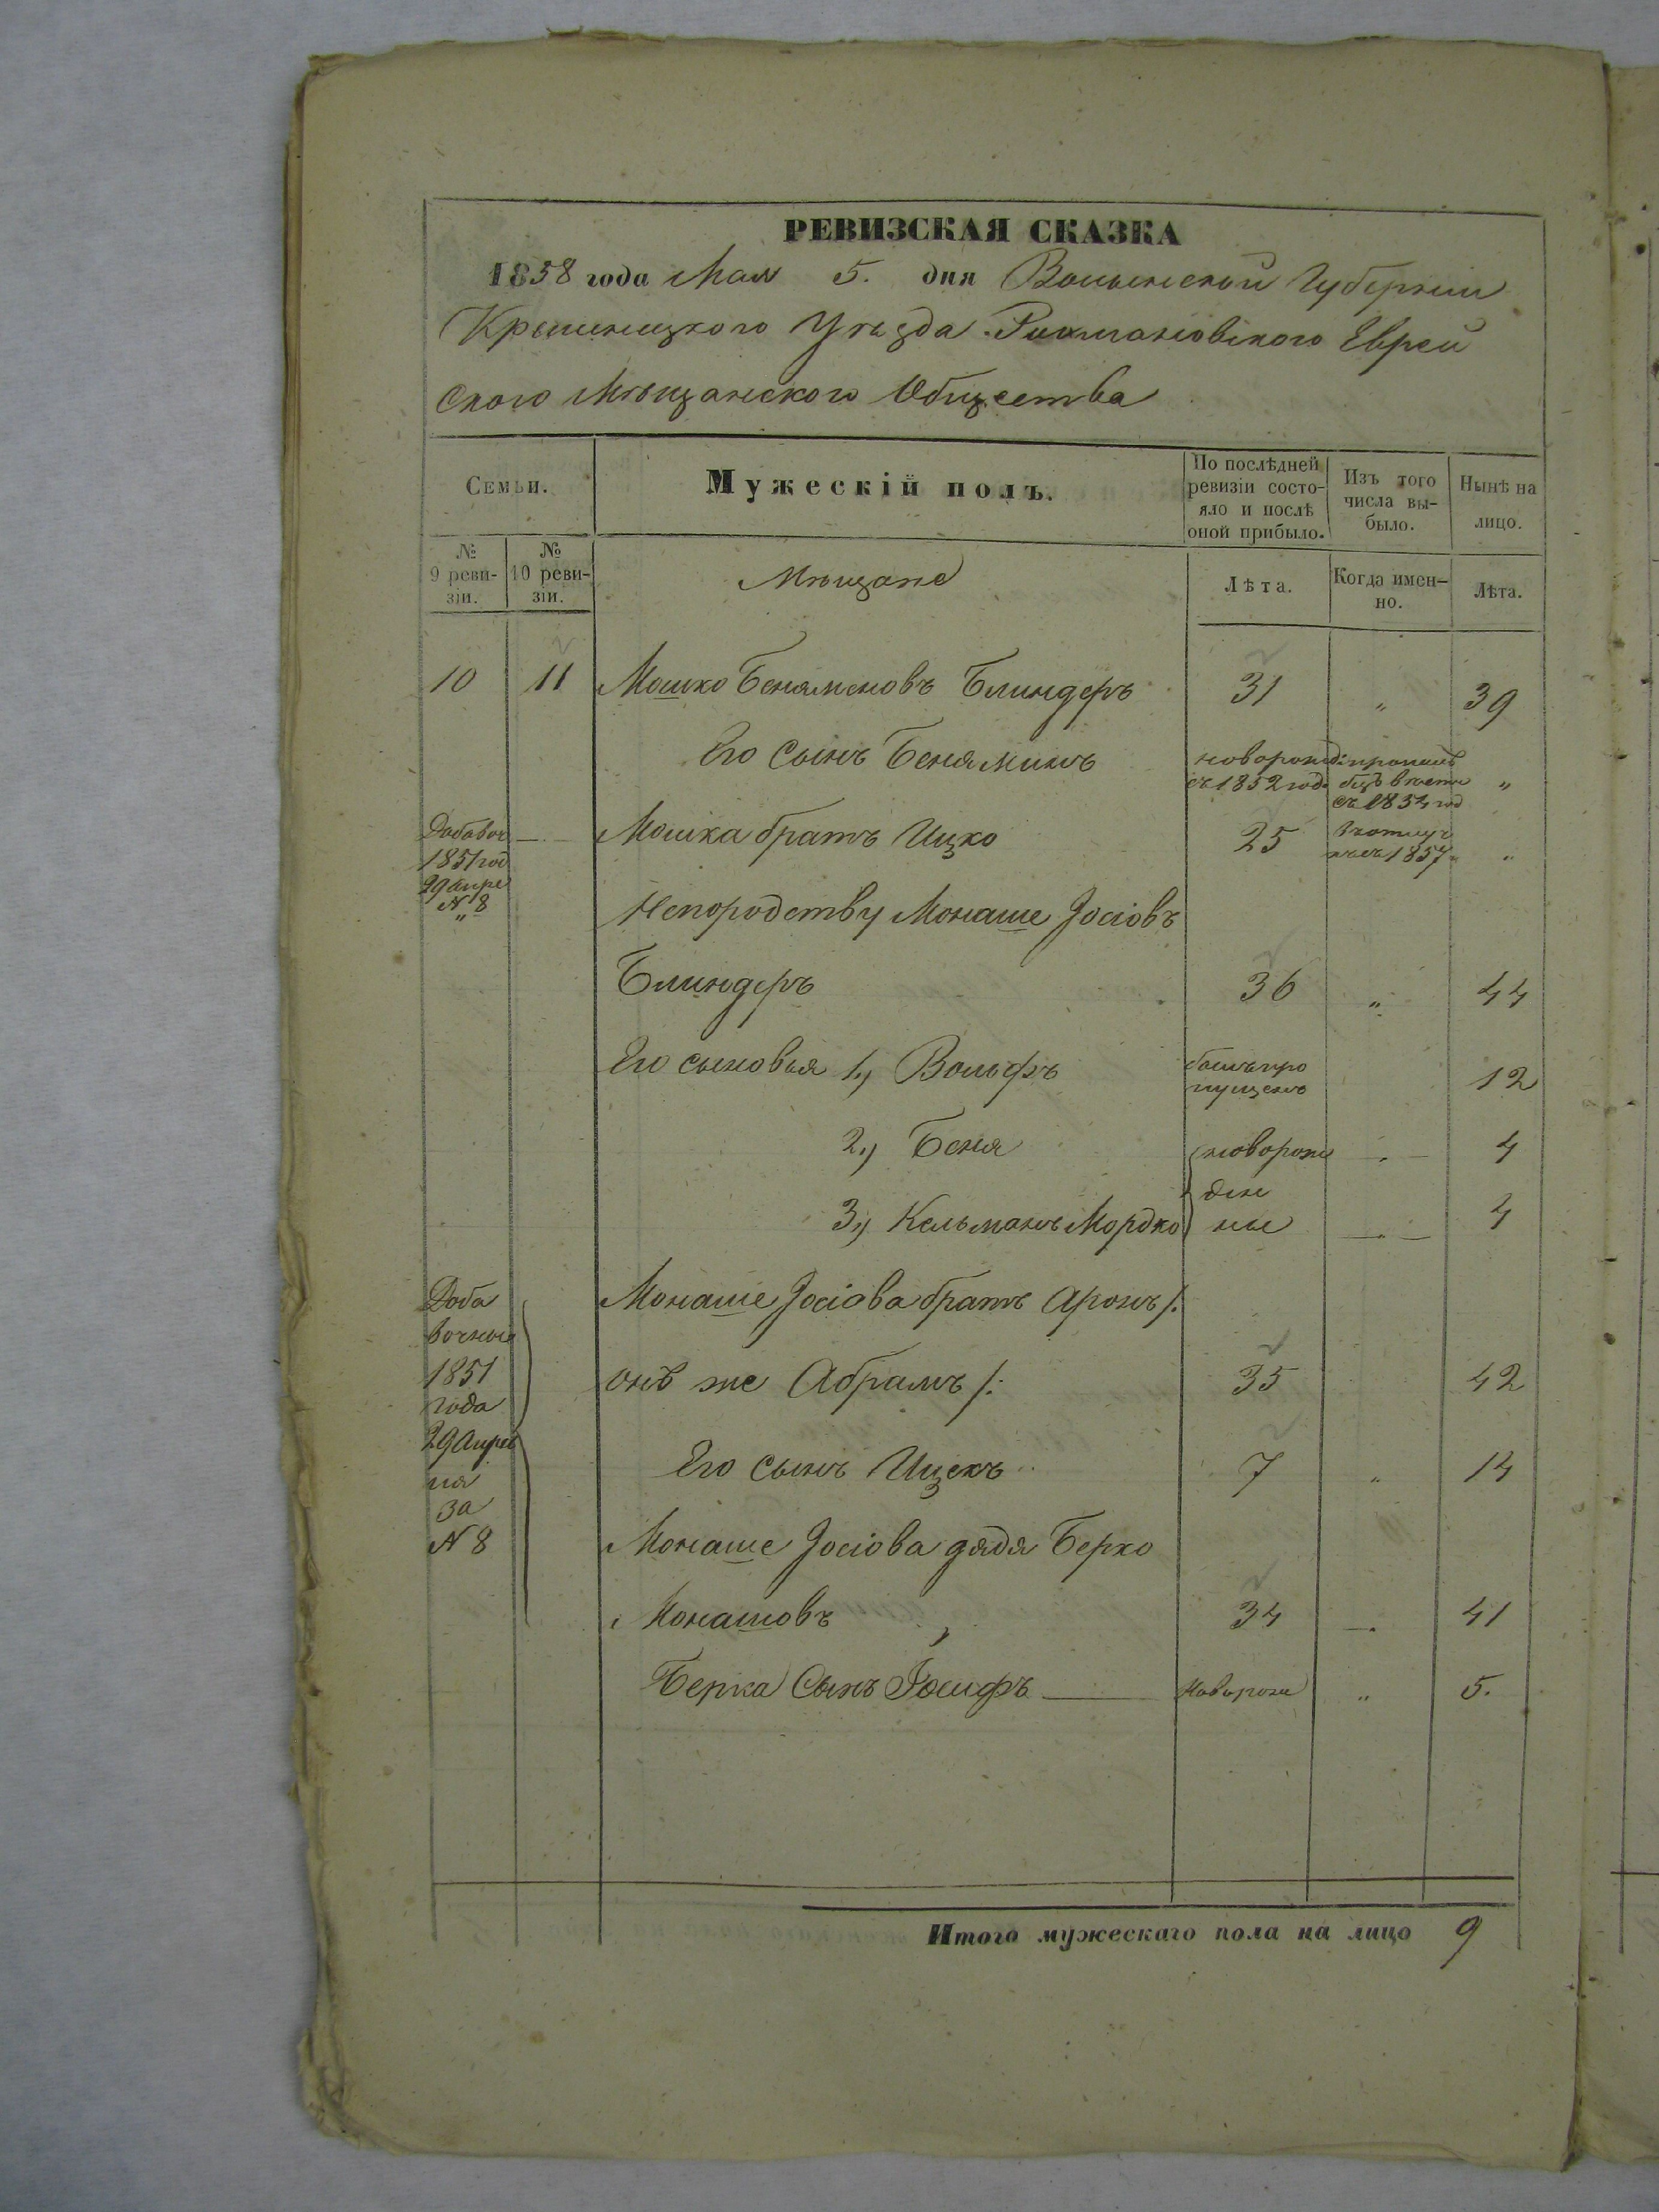 РЕВИЗСКАЯ СКАЗКА
1858 года Мая 5. дня Волынской Губерніи
Кременицкого Уѣзда Рахмановского Еврей
ского Мѣщанского Общества
Семьи.
Мужескій полъ.
По послѣдней ревизіи состо-
яло и послѣ
оной прибыло.
Изъ того
числа вы-
было.
Нынѣ на
лицо.
№
9 реви-
зіи.
№
10 реви-
зіи.
Мѣщане
Лѣта.
Когда имен-
но.
Лѣта.
10 11 Мошко Беняменовъ Блиндеръ 31 „ 39
Его Сынъ Беняминъ
новорожд:
съ 1852 год.
пропалъ
безъ вести
съ 1854 год
„
Добавоч
1851 год
29 апре
N 8
„
Мошка братъ Ицко 25
1857 „
Непородству Монаше Іосіовъ
Блиндеръ 36 „ 44
Его сыновья 1.) Вольфъ
былъ про
пущенъ
12
2.) Беня новорож 4
ден
3.) Кельманъ Мордко ные 4
Доба
вочные
1851
года
29 Апре
ля
за
N 8
Монаше Іосіова братъ Аронъ /:
онъ же Абрамъ /: 35 42
Его сынъ Ицекъ 7 „ 14
Монаше Іосіова дядя Берко
Монашовъ 34 41
Берка Сынъ Іосифъ новорож „ 5.
Итого мужескаго пола на лицо 9